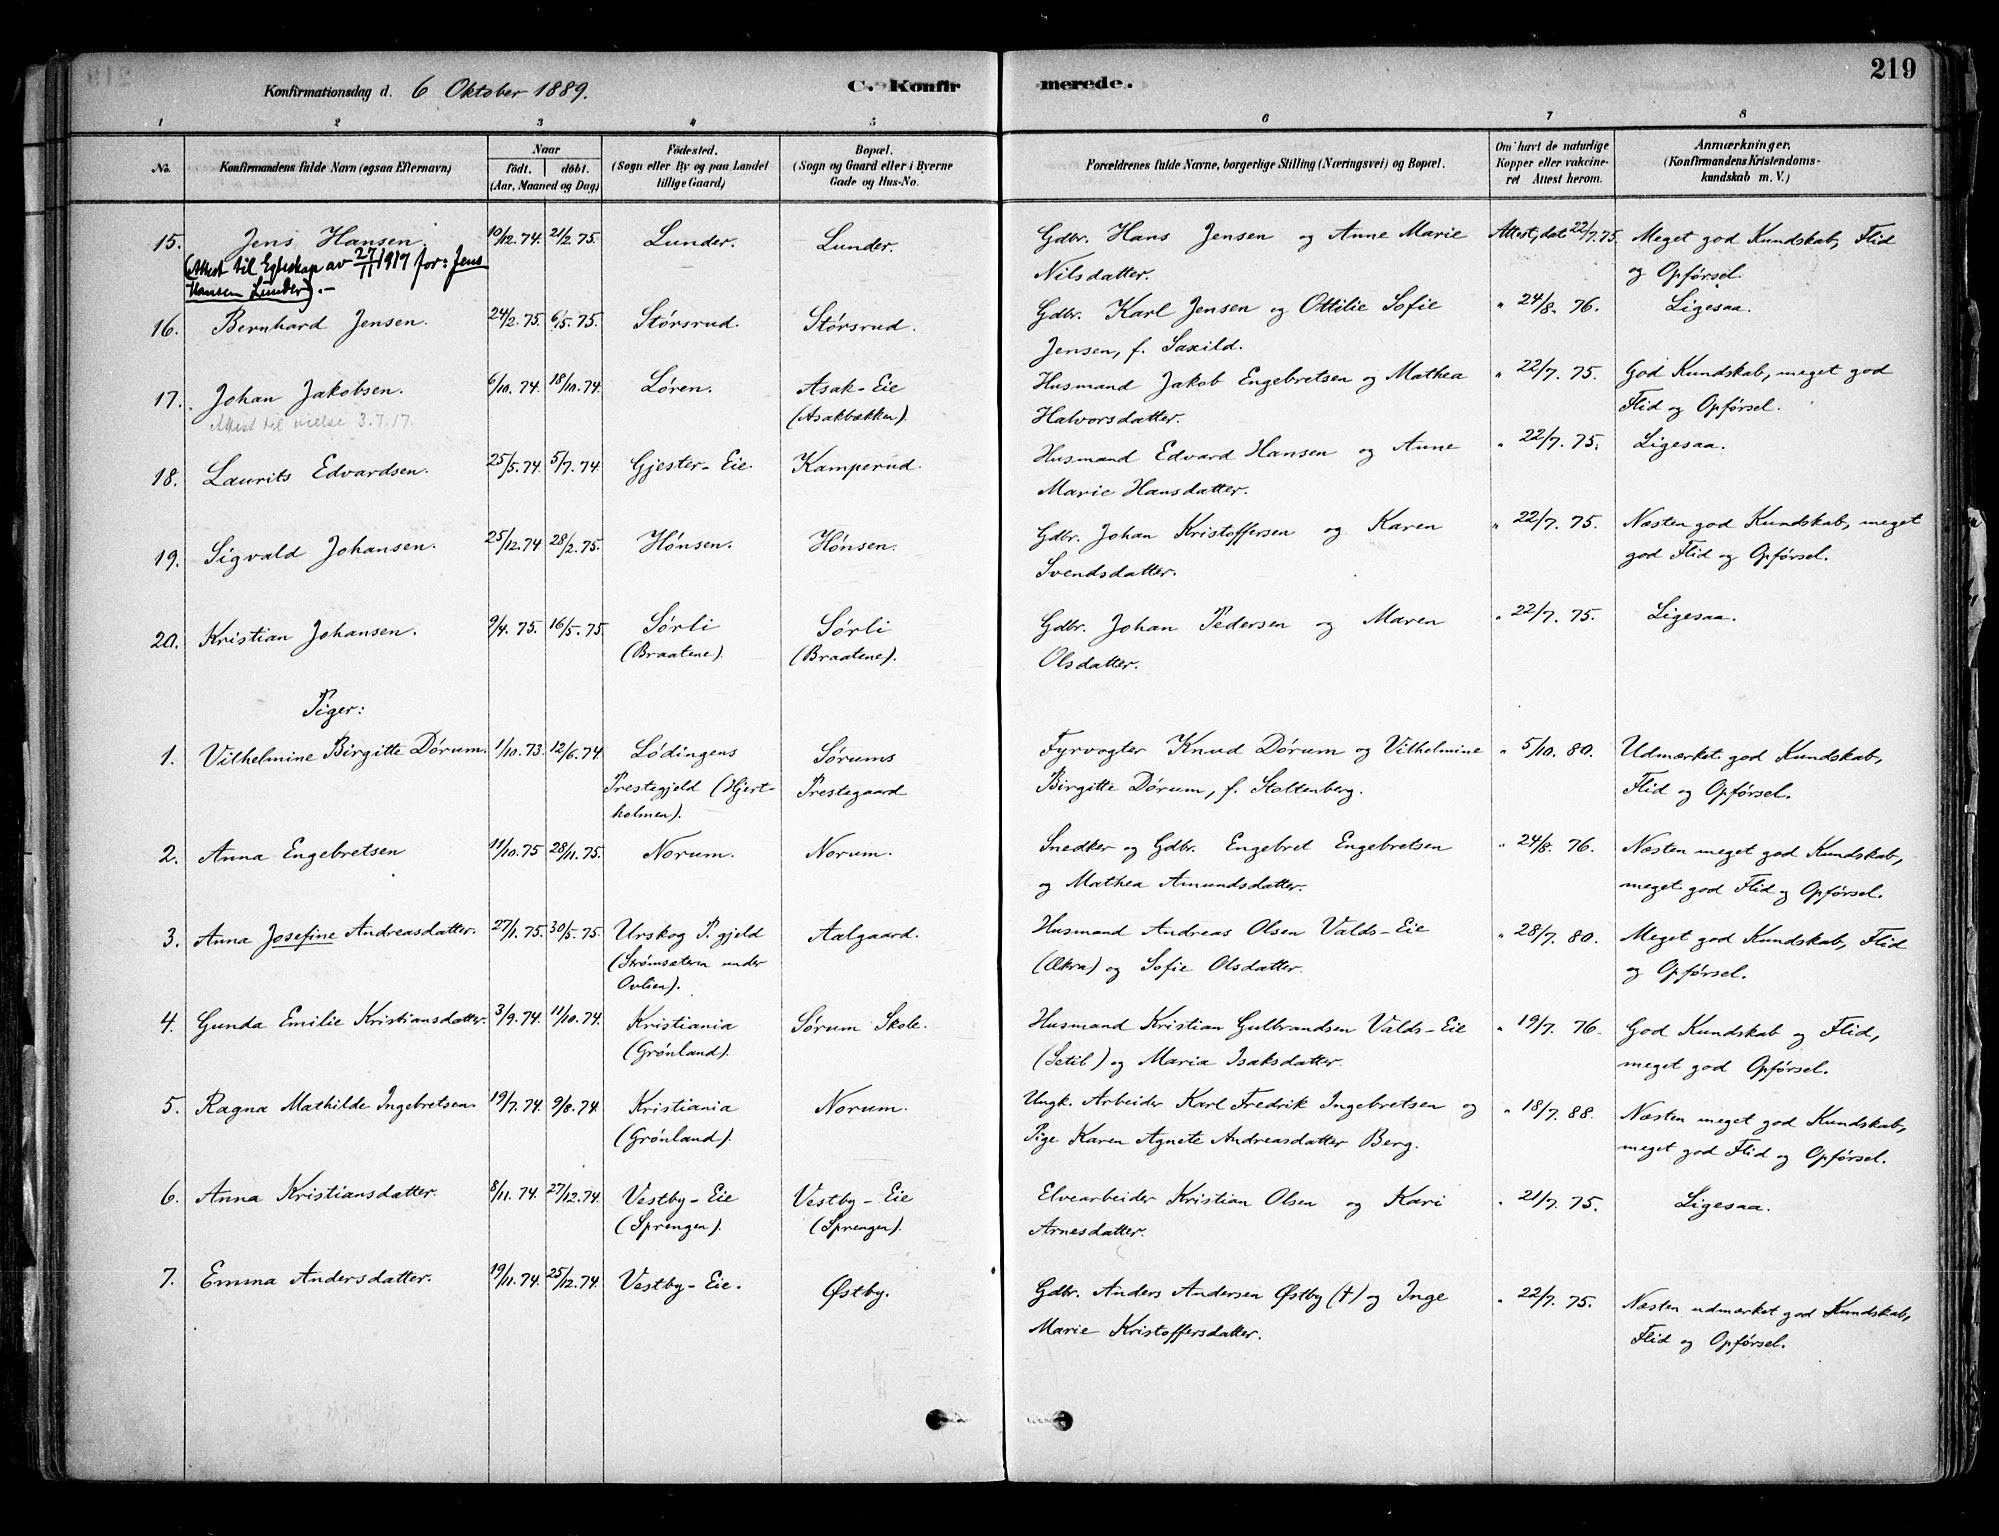 219
Konfirmationsdag d. 6 Oktober 1889.
C. Konfirmerede.
1 2 3 4 5 6 7 8
No.
Konfirmandens fulde Navn (ogsaa Efternavn)
Naar
født. døbt.
(Aar, Maaned og Dag)
Fødested.
(Sogn eller By og paa Landet
tillige Gaard)
Bopæl.
(Sogn og Gaard eller i Byerne
Gade og Hus-No.
Forældrenes fulde Navne, borgerlige Stilling (Næringsvei) og Bopæl.
Om havt de naturlige
Kopper eller vakcine-
ret Attest herom.
Anmærkninger,
(Konfirmandens Kristendoms-
kundskab m. V.)
15. Jens Hansen. 10/12.74. 21/2.75. Lunder. Lunder. Gdbr. Hans Jensen og Anne Marie Attest, dat. 22/7.75. Meget god Kundskab, Flid
(Attest til Egteskap av 27/11 1917 for: Jens
Hansen Lunder).-
Nilsdatter. og Opførsel.
16. Bernhard Jensen. 24/2.75. 6/5.75. Størsrud. Størsrud. Gdbr. Karl Jensen og Ottilie Sofie " 24/8. 76. Ligesaa.
Jensen, f. Saxild.
17. Johan Jakobsen. 6/10.74. 18/10.74. Løren. Asak-Eie Husmand Jakob Engebretsen og Mathea " 22/7. 75. God Kundskab, meget god
Attest til vielse 3.7.17. (Asakbækken). Halvorsdatter. Flid og Opførsel.
18. Laurits Edvardsen. 25/5.74. 5/7.74. Gjester-Eie. Kamperud. Husmand Edvard Hansen og Anne " 22/7. 75. Ligesaa.
Marie Hansdatter.
19. Sigvald Johansen. 25/12.74 28/2.75. Hønsen. Hønsen. Gdbr. Johan Kristoffersen og Karen " 22/7. 75. Næsten god Kundskab, meget
Svendsdatter. god Flid og Opførsel.
20. Kristian Johansen. 9/4.75. 16/5.75. Sørli Sørli Gdbr. Johan Pedersen og Maren " 22/7. 75. Ligesaa.
(Braatene). (Braatene). Olsdatter.
Piger:
1. Vilhelmine Birgitte Dørum. 1/10.73. 12/6.74. Lødingens Sørums Fyrvogter Knud Dørum og Vilhelmine " 5/10. 80. Udmærket god Kundskab,
Prestegjeld (Hjert- Prestegaard Birgitte Dørum, f. Stoltenberg. Flid og Opførsel.
holmen).
2. Anna Engebretsen 11/10.75 28/11.75. Norum. Norum. Snedker og Gdbr. Engebret Engebretsen " 24/8. 76. Næsten meget god Kundskab,
og Mathea Amundsdatter. meget god Flid og Opførsel.
3. Anna Josefine Andreasdatter. 27/1.75. 30/5.75. Urskog P. gjeld Aalgaard. Husmand Andreas Olsen Valds-Eie " 28/7. 80. Meget god Kundskab, Flid
(Strømsætern under (Ækra) og Sofie Olsdatter. og Opførsel.
Ovlien).
4. Gunda Emilie Kristiansdatter. 3/9.74. 11/10.74. Kristiania Sørum Skole. Husmand Kristian Gulbrandsen Valds-Eie " 19/7. 76. God Kundskab og Flid,
(Grønland). (Setil) og Maria Isaksdatter. meget god Opførsel.
5. Ragna Mathilde Ingebretsen. 19/7.74. 9/8.74. Kristiania Norum. Ungk. Arbeider Karl Fredrik Ingebretsen og " 18/7. 88. Næsten meget god Kundskab,
(Grønland). Pige Karen Agnete Andreasdatter Berg. meget god Flid og Opførsel.
6. Anna Kristiansdatter. 8/11.74. 27/12.74. Vestby-Eie Vestby-Eie Elvearbeider Kristian Olsen og Kari " 21/7. 75. Ligesaa.
(Sprengen). (Sprengen). Arnesdatter.
7. Emma Andersdatter. 19/11.74. 25/12.74. Vestby-Eie. Østby. Gdbr. Anders Andersen Østby (†) og Inge " 22/7. 75. Næsten udmærket god Kundskab,
Marie Kristoffersdatter. Flid og Opførsel.